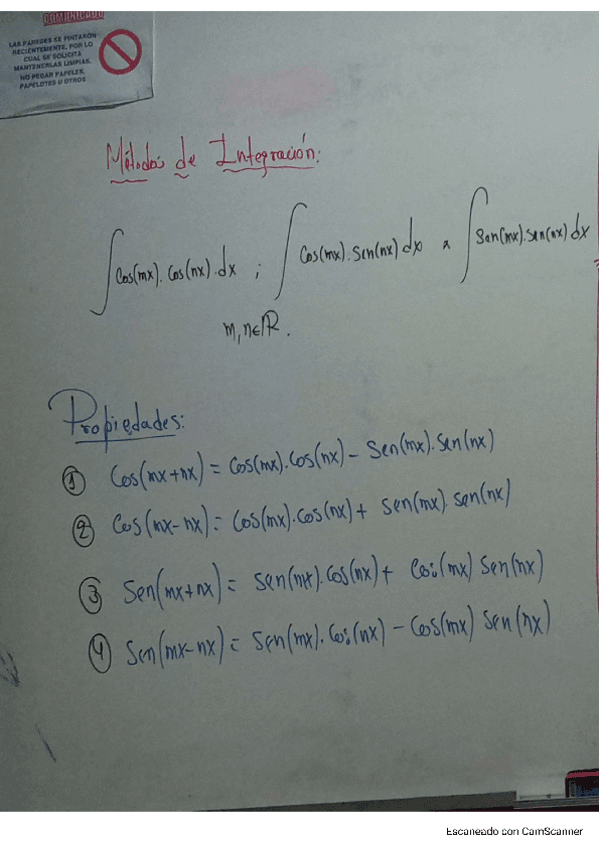 COMUNICADO
LAS PAREDES SE PINTARON
RECIENTEMENTE, POR LO
CUAL SE SOLICITA
MANTENERLAS LIMPIAS.
NO PEGAR PAPELES,
PAPELOTES U OTROS
Métodos de Integración:
∫Cos(mx).Cos(nx).dx ; ∫Cos(mx).Sen(nx)dx ∧ ∫Sen(mx).Sen(nx)dx
m,n∈ℝ.
Propiedades:
① Cos(mx+nx) = Cos(mx).Cos(nx) - Sen(mx).Sen(nx)
② Cos(mx-nx) = Cos(mx).Cos(nx) + Sen(mx).Sen(nx)
③ Sen(mx+nx) = Sen(mx).Cos(nx) + Cos(mx) Sen(nx)
④ Sen(mx-nx) = Sen(mx).Cos(nx) - Cos(mx) Sen(nx)
Escaneado con CamScanner